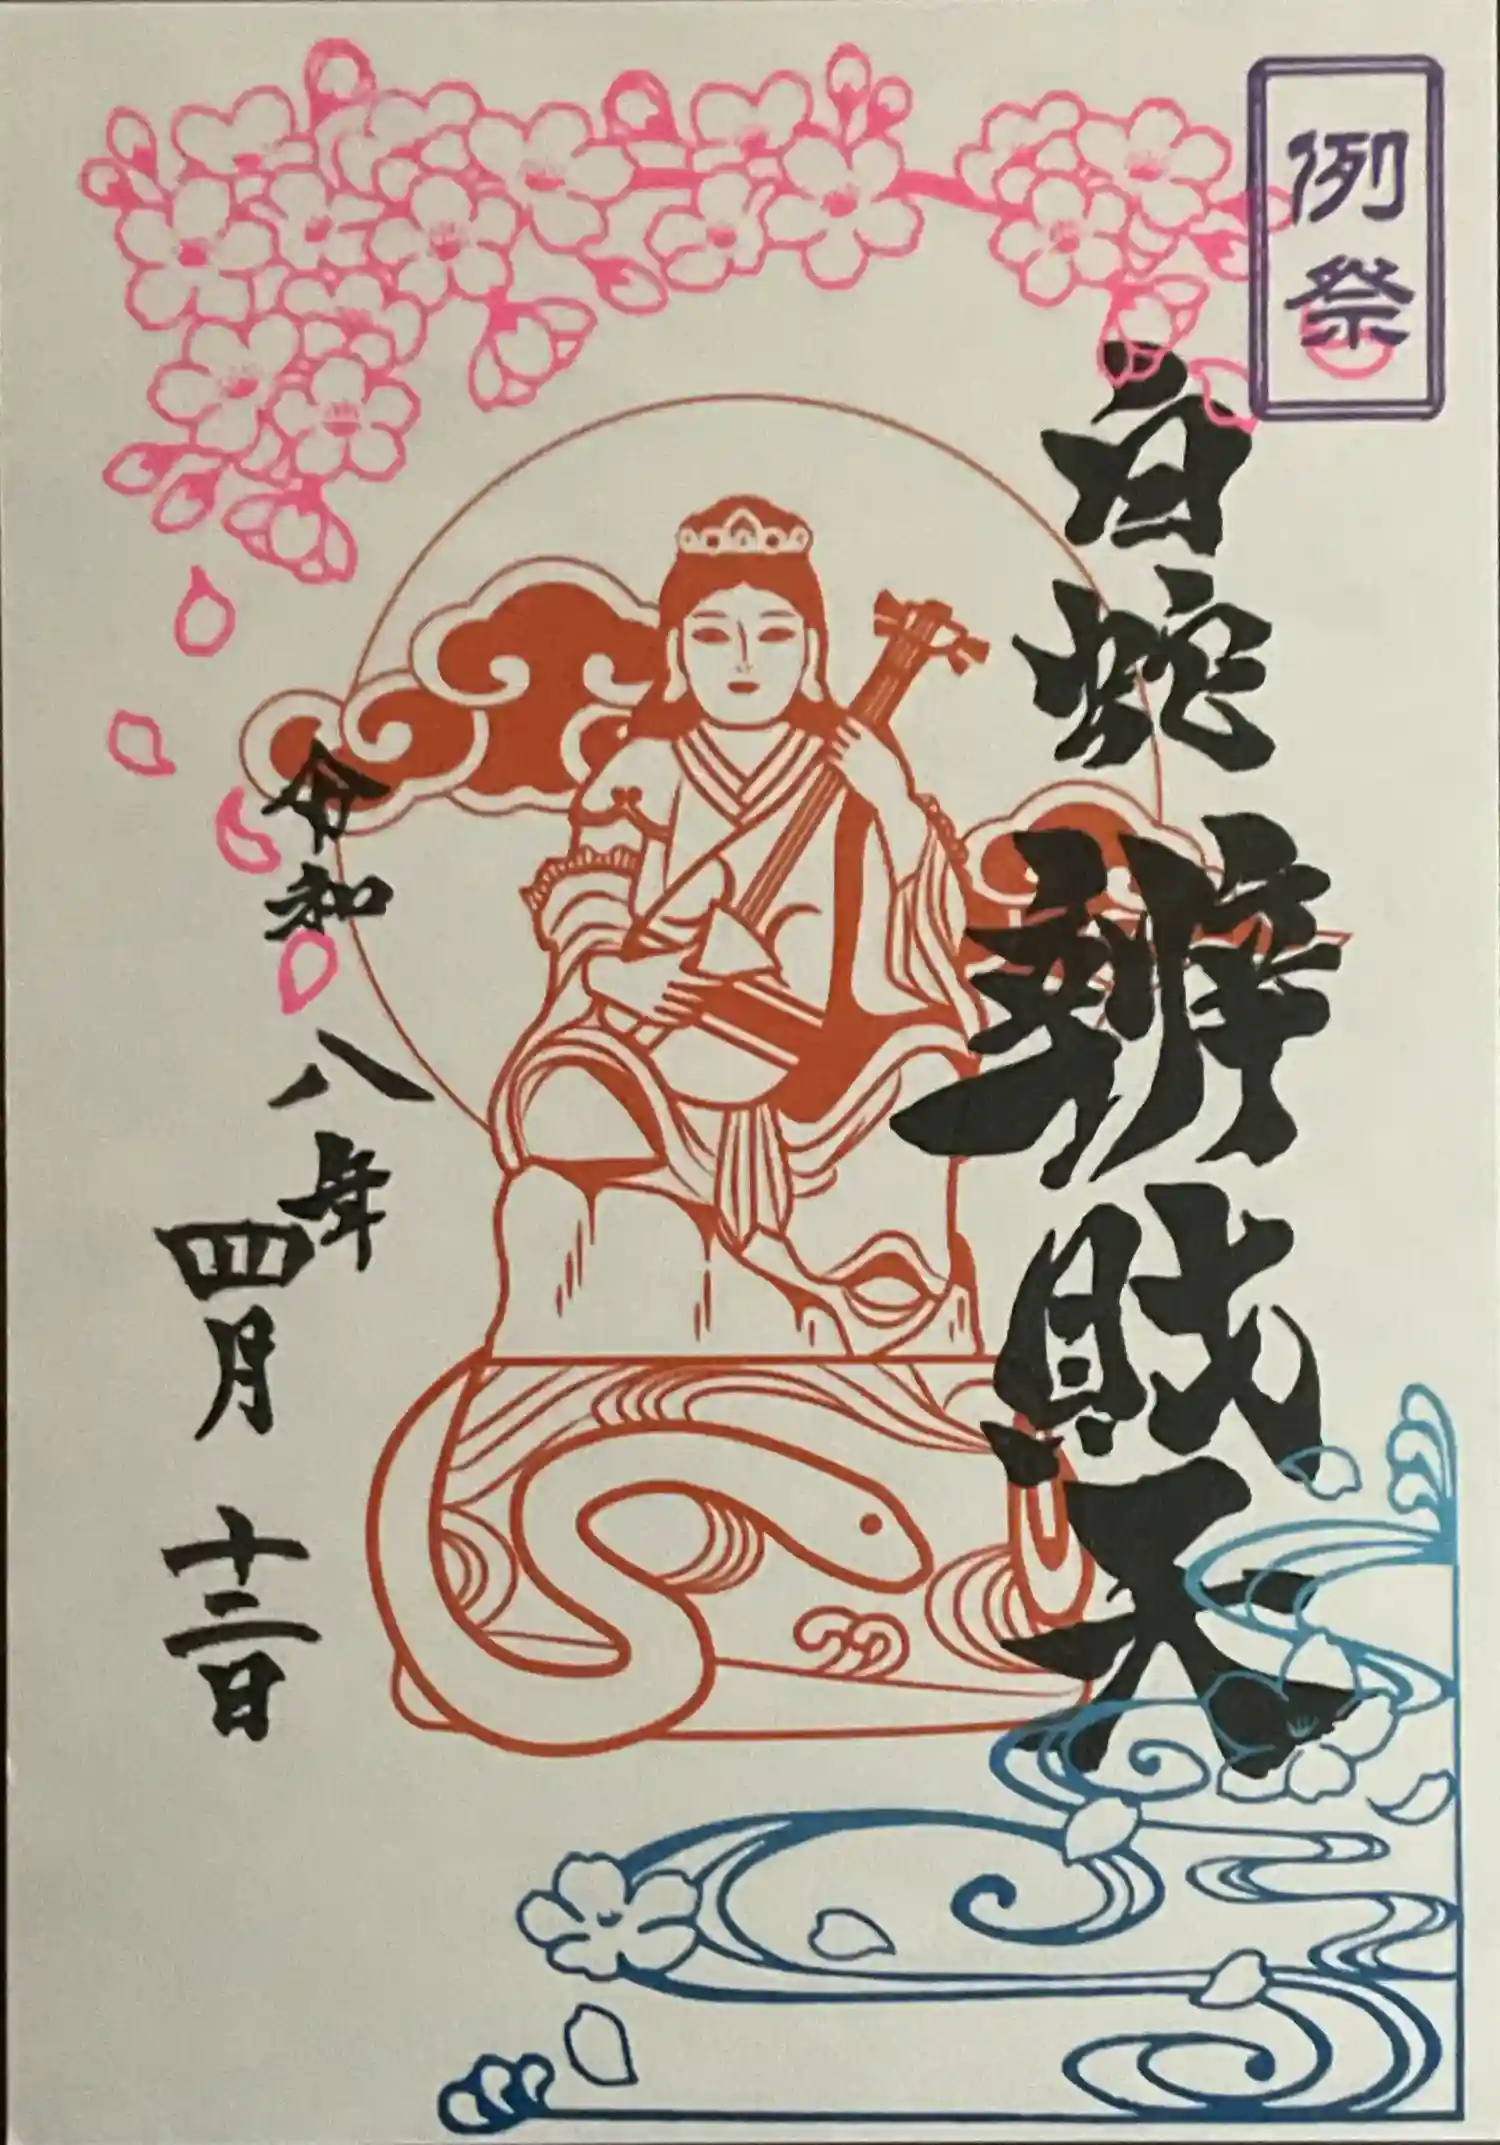 例祭
白蛇辨財天
令和八年
四月十二日